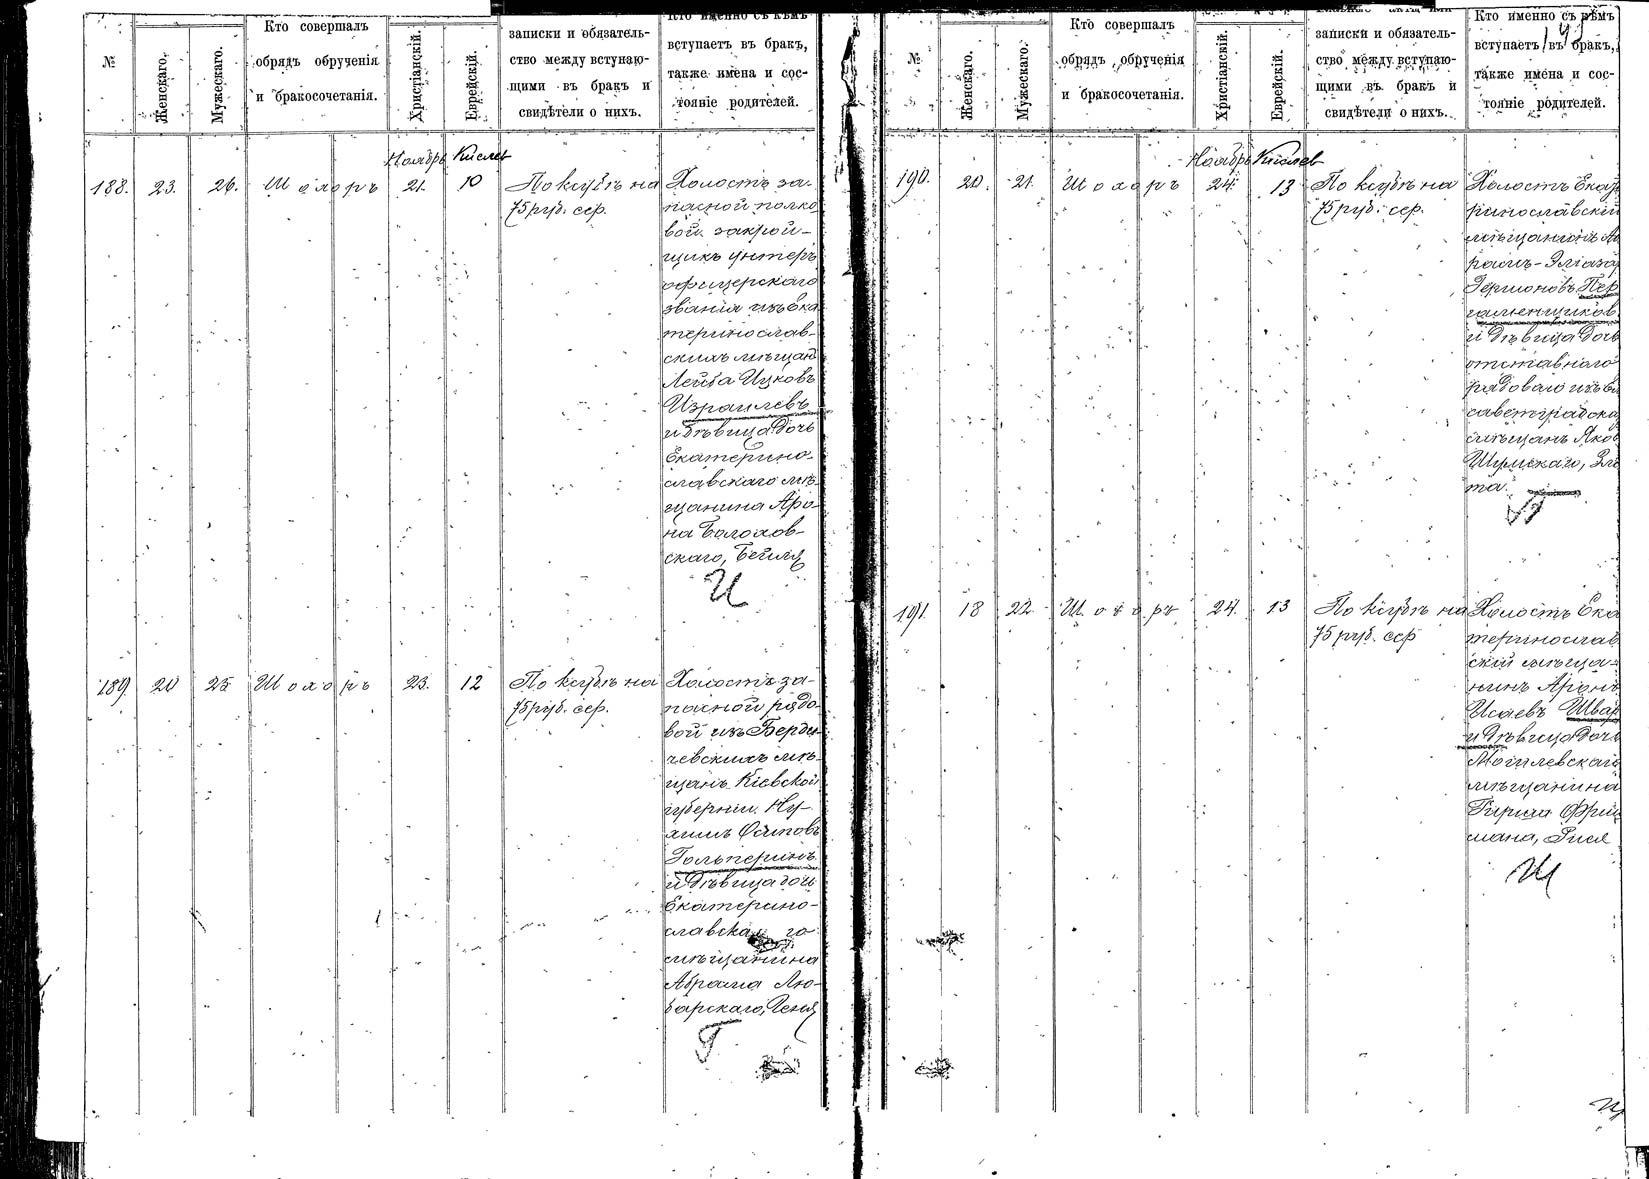 №
Женскаго.
Мужескаго.
Кто совершалъ
обрядъ обрученія
и бракосочетанія.
Христіанскій.
Еврейскій.
записки и обязатель-
ство между вступаю-
щими въ бракъ и
свидѣтели о нихъ.
Кто именно съ кѣмъ
вступаетъ въ бракъ,
также имена и сос-
тояніе родителей.
Ноябрь Кислев
188. 23. 26. Шохоръ 21. 10 По ксубѣ на
75 руб. сер.
Холостъ за-
пасной полко
вой закрой-
щикъ унтеръ
офицерскаго
званія изъ Ека
теринослав-
скихъ мѣщан
Лейба Ицковъ
Израилевъ
и дѣвица дочь
Екатерино-
славскаго мѣ-
щанина Аро-
на Болохов-
скаго, Бейля
И
189. 20 25 Шохоръ 23. 12 По ксубѣ на
75 руб. сер.
Холостъ за-
пасной рядо-
вой изъ Берди-
чевскихъ мѣ-
щанъ Кіевской
губерніи Ну-
химъ Осиповъ
Гольперинъ
и дѣвица дочь
Екатерино-
славскаго
мѣщанина
Абрама Лю-
барскаго, Геня
Г
№
Женскаго.
Мужескаго.
Кто совершалъ
обрядъ обрученія
и бракосочетанія.
Христіанскій.
Еврейскій.
записки и обязатель-
ство между вступаю-
щими въ бракъ и
свидѣтели о нихъ.
Кто именно съ кѣмъ
вступаетъ въ бракъ,
также имена и сос-
тояніе родителей.
Ноябрь Кислев
190. 20. 21. Шохоръ 24. 13 По ксубѣ на
75 руб. сер.
Холостъ Екате
ринославскій
мѣщанинъ Аб
рамъ-Эліаза
Гершоновъ Пер
гаменщиков
и дѣвица дочь
отставнаго
рядоваго изъ Ели
саветградска
мѣщанъ Яков
Шумскаго, Зла
та.
П
191. 18 22 Шохоръ 24. 13 По ксубѣ на
75 руб. сер
Холостъ Ека
теринослав
скій мѣща-
нинъ Аронъ
Исаевъ Швар
и дѣвица дочь
Могилевскаго
мѣщанина
Гирша Фриш
мана, Рися
Ш